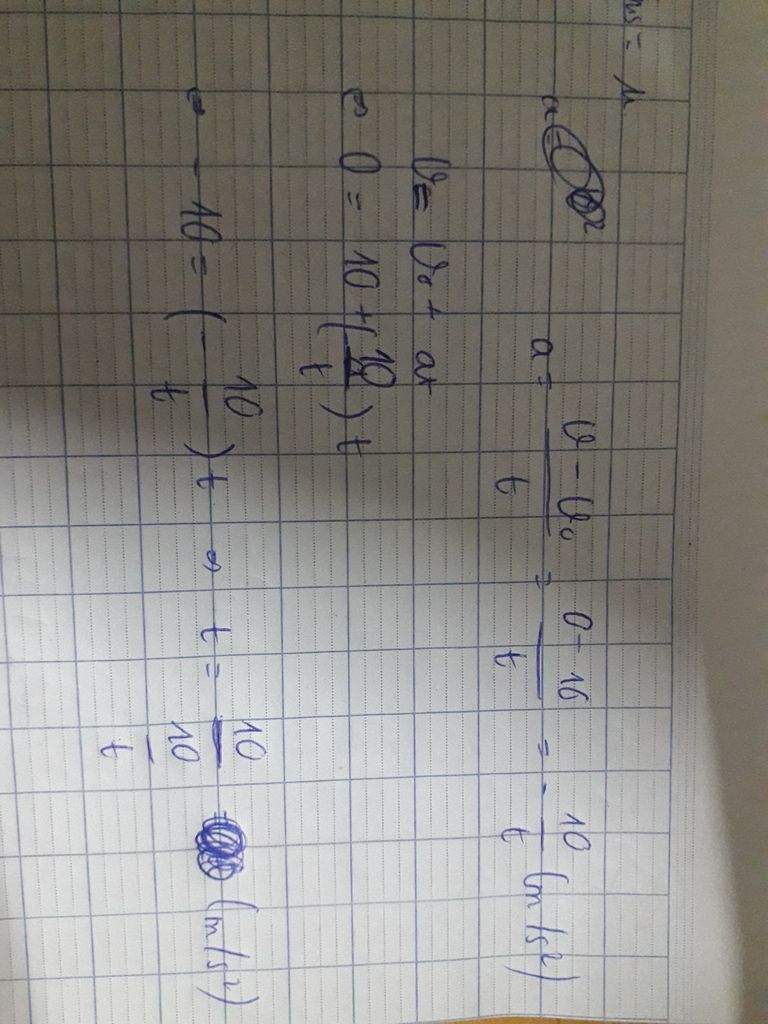 ms = μ
a = v - v₀ / t = 0 - 10 / t = - 10 / t (m/s²)
v = v₀ + at
⇔ 0 = 10 + (- 10 / t) t
⇔ - 10 = (- 10 / t) t ⇔ t = 10 / 10 / t (m/s²)